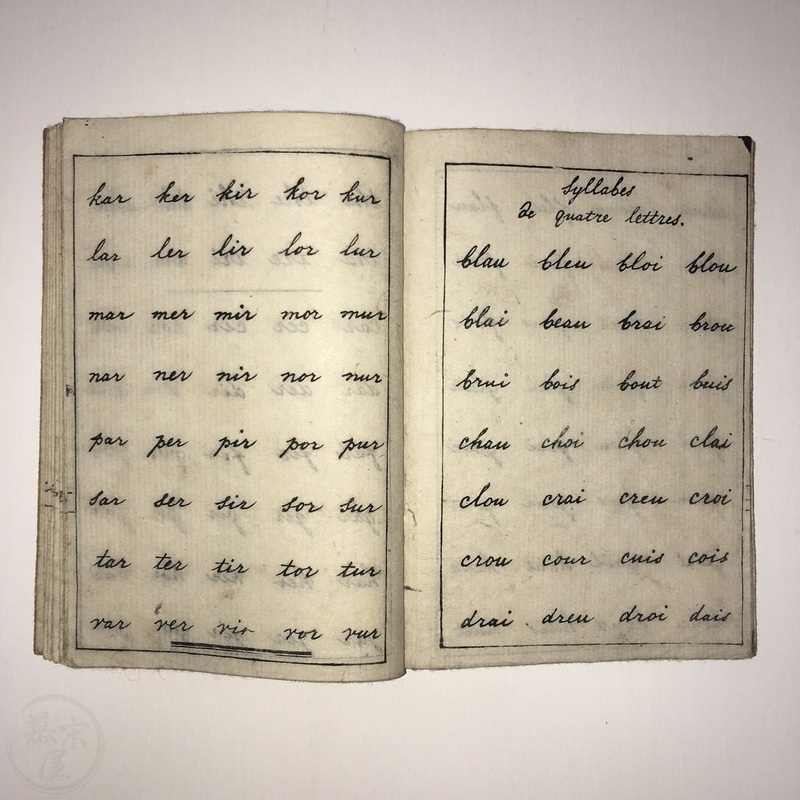 kar ker kir kor kur
lar ler lir lor lur
mar mer mir mor mur
nar ner nir nor nur
par per pir por pur
sar ser sir sor sur
tar ter tir tor tur
var ver vir vor vur
Syllabes
de quatre lettres.
blau bleu bloi blou
blai beau brai brou
brui bois bout buis
chau choi chou clai
clou crai creu croi
crou cour cuis cois
drai dreu droi dais
幕末屋